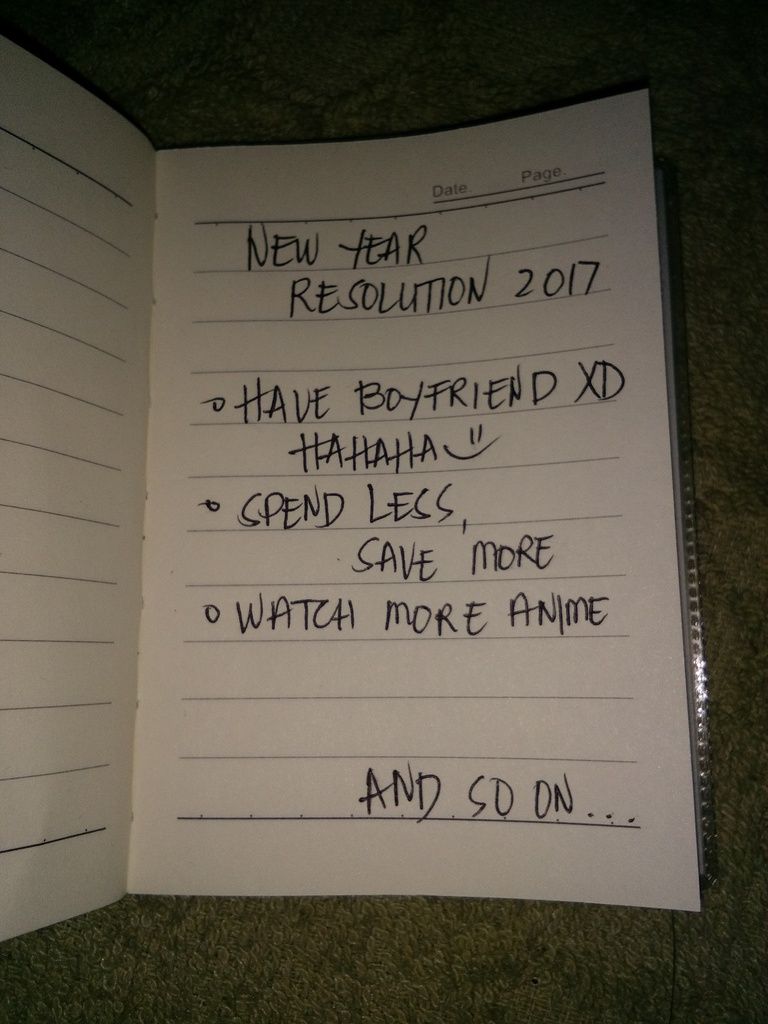 Date. Page.
NEW YEAR
RESOLUTION 2017
HAVE BOYFRIEND XD
HAHAHA
SPEND LESS,
SAVE MORE
WATCH MORE ANIME
AND SO ON...